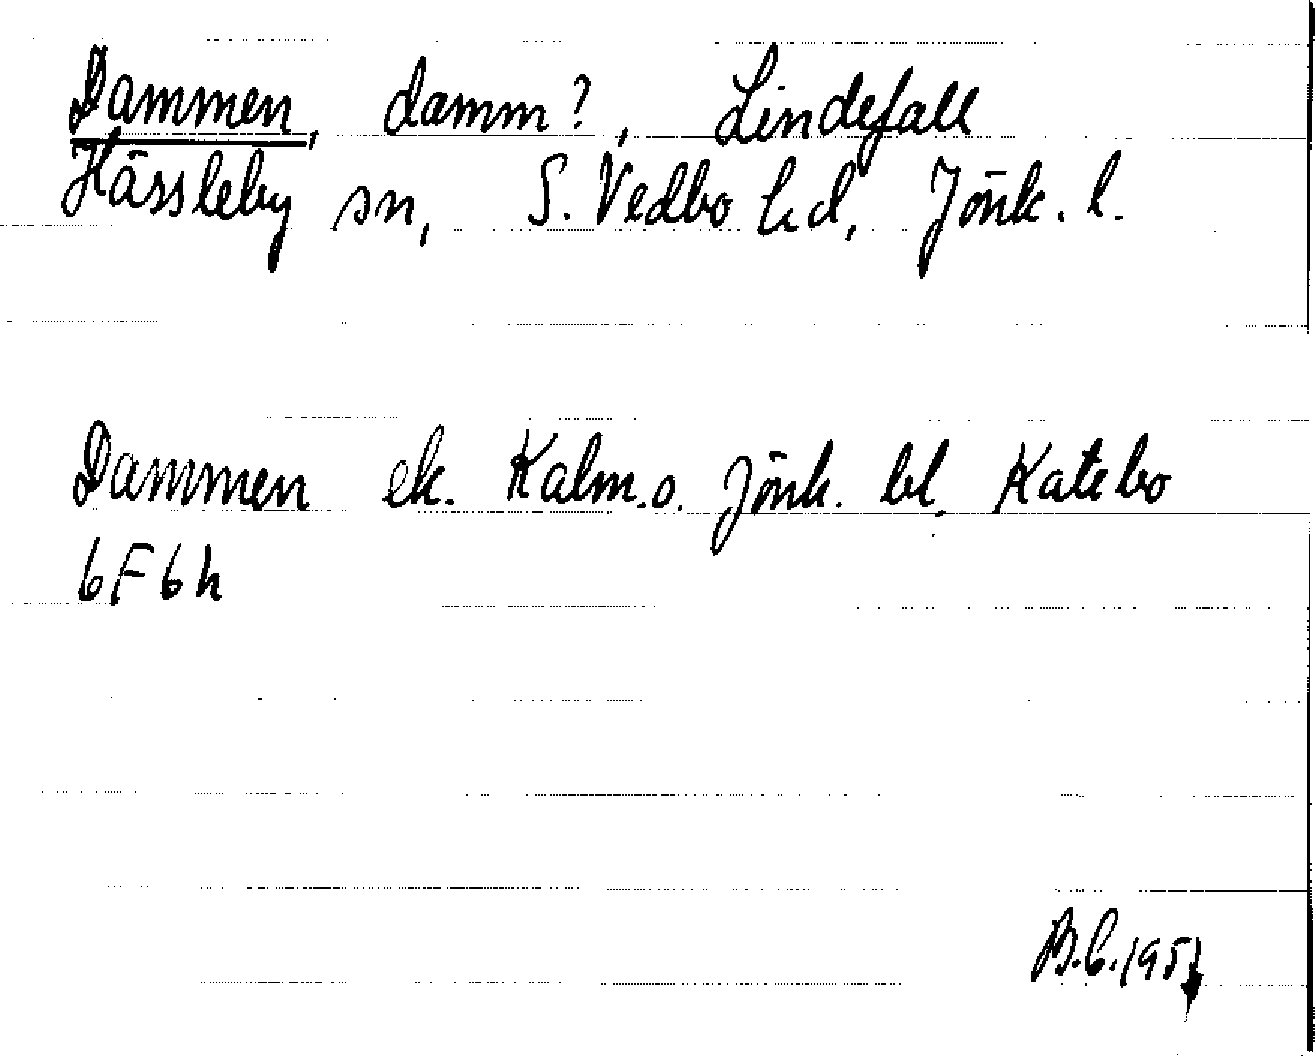 Dammen, damm?, Lindefall
Hässleby sn, S. Vedbo hd, Jönk. l.
Dammen ek. Kalm.o. Jönk. bl. Katebo
6F6h
B.C. 195